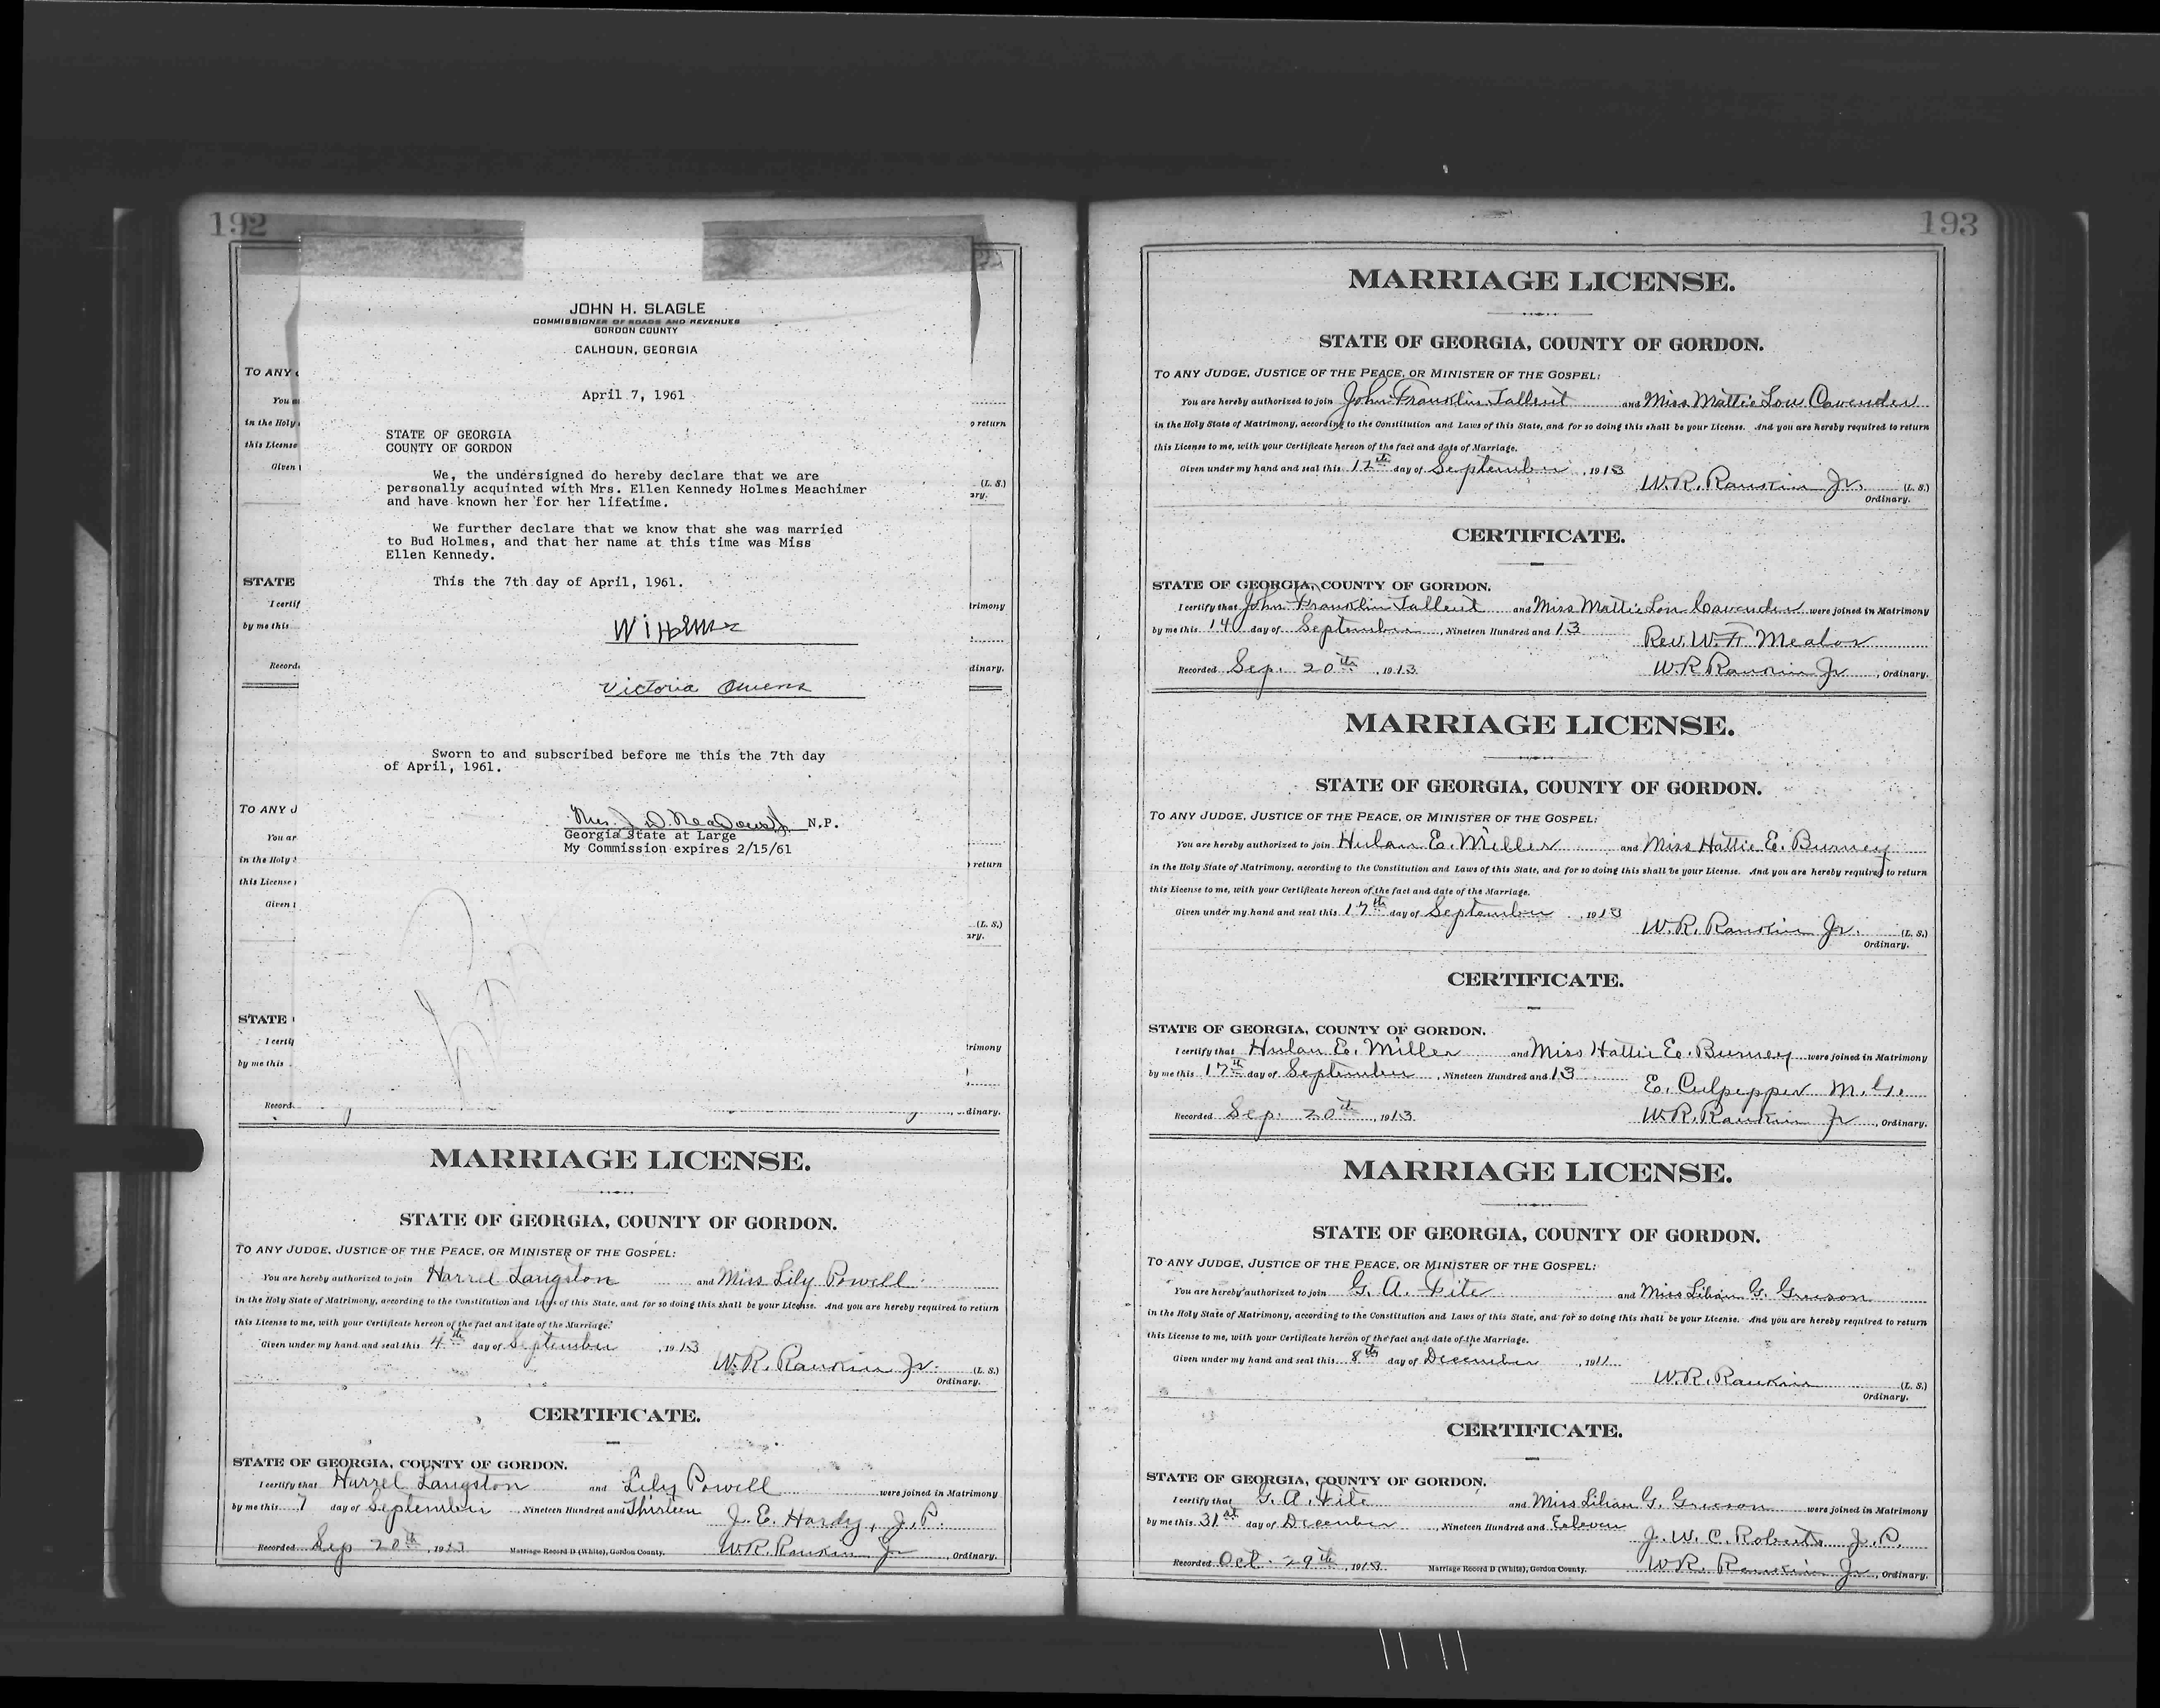 192
JOHN H. SLAGLE
COMMISSIONER OF ROADS AND REVENUES
GORDON COUNTY
CALHOUN, GEORGIA
April 7, 1961
STATE OF GEORGIA
COUNTY OF GORDON
We, the undersigned do hereby declare that we are
personally acquinted with Mrs. Ellen Kennedy Holmes Meachimer
and have known her for her lifetime.
We further declare that we know that she was married
to Bud Holmes, and that her name at this time was Miss
Ellen Kennedy.
This the 7th day of April, 1961.
Victoria Owens
Sworn to and subscribed before me this the 7th day
of April, 1961.
Mrs. J. D. N.P.
Georgia State at Large
My Commission expires 2/15/61
TO ANY
You
in the Holy
this License
Given
return
(L. S.)
STATE
I certif
by me this
Record
trimony
dinary.
TO ANY J
You ar
in the Holy
this License
Given
return
(L. S.)
STATE
I certi
by me this
Record
trimony
dinary.
MARRIAGE LICENSE.
STATE OF GEORGIA, COUNTY OF GORDON.
TO ANY JUDGE, JUSTICE OF THE PEACE, OR MINISTER OF THE GOSPEL:
You are hereby authorized to join Harrel Langston and Miss Lily Powell
in the Holy State of Matrimony, according to the Constitution and Laws of this State, and for so doing this shall be your License. And you are hereby required to return
this License to me, with your Certificate hereon of the fact and date of the Marriage.
Given under my hand and seal this 4th day of September, 1913
W. R. Rankin Jr. (L. S.)
Ordinary.
CERTIFICATE.
STATE OF GEORGIA, COUNTY OF GORDON.
I certify that Harrel Langston and Lily Powell were joined in Matrimony
by me this 7 day of September, Nineteen Hundred and Thirteen J. E. Hardy, J. P.
Recorded Sep 20th, 1913 Marriage Record D (White), Gordon County. W. R. Rankin Jr, Ordinary.
193
MARRIAGE LICENSE.
STATE OF GEORGIA, COUNTY OF GORDON.
TO ANY JUDGE, JUSTICE OF THE PEACE, OR MINISTER OF THE GOSPEL:
You are hereby authorized to join John Franklin Tallent and Miss Mattie Lou Cavender
in the Holy State of Matrimony, according to the Constitution and Laws of this State, and for so doing this shall be your License. And you are hereby required to return
this License to me, with your Certificate hereon of the fact and date of Marriage.
Given under my hand and seal this 12th day of September, 1913
W. R. Rankin Jr. (L. S.)
Ordinary.
CERTIFICATE.
STATE OF GEORGIA, COUNTY OF GORDON.
I certify that John Franklin Tallent and Miss Mattie Lou Cavender were joined in Matrimony
by me this 14 day of September, Nineteen Hundred and 13 Rev. W. F. Mealor
Recorded Sep. 20th, 1913 W. R. Rankin Jr, Ordinary.
MARRIAGE LICENSE.
STATE OF GEORGIA, COUNTY OF GORDON.
TO ANY JUDGE, JUSTICE OF THE PEACE, OR MINISTER OF THE GOSPEL:
You are hereby authorized to join Hulan E. Miller and Miss Hattie E. Burney
in the Holy State of Matrimony, according to the Constitution and Laws of this State, and for so doing this shall be your License. And you are hereby required to return
this License to me, with your Certificate hereon of the fact and date of the Marriage.
Given under my hand and seal this 17th day of September, 1913
W. R. Rankin Jr. (L. S.)
Ordinary.
CERTIFICATE.
STATE OF GEORGIA, COUNTY OF GORDON.
I certify that Hulan E. Miller and Miss Hattie E. Burney were joined in Matrimony
by me this 17th day of September, Nineteen Hundred and 13
E. Culpepper M. G.
Recorded Sep. 20th, 1913 W. R. Rankin Jr, Ordinary.
MARRIAGE LICENSE.
STATE OF GEORGIA, COUNTY OF GORDON.
TO ANY JUDGE, JUSTICE OF THE PEACE, OR MINISTER OF THE GOSPEL:
You are hereby authorized to join G. A. Fite and Miss Lilian G. Greeson
in the Holy State of Matrimony, according to the Constitution and Laws of this State, and for so doing this shall be your License. And you are hereby required to return
this License to me, with your Certificate hereon of the fact and date of the Marriage.
Given under my hand and seal this 8th day of December, 1911
W. R. Rankin (L. S.)
Ordinary.
CERTIFICATE.
STATE OF GEORGIA, COUNTY OF GORDON.
I certify that G. A. Fite and Miss Lilian G. Greeson were joined in Matrimony
by me this 31st day of December, Nineteen Hundred and Eeleven J. W. C. Roberts J. P.
Recorded Oct. 29th, 1913 Marriage Record D (White), Gordon County. W. R. Rankin Jr, Ordinary.